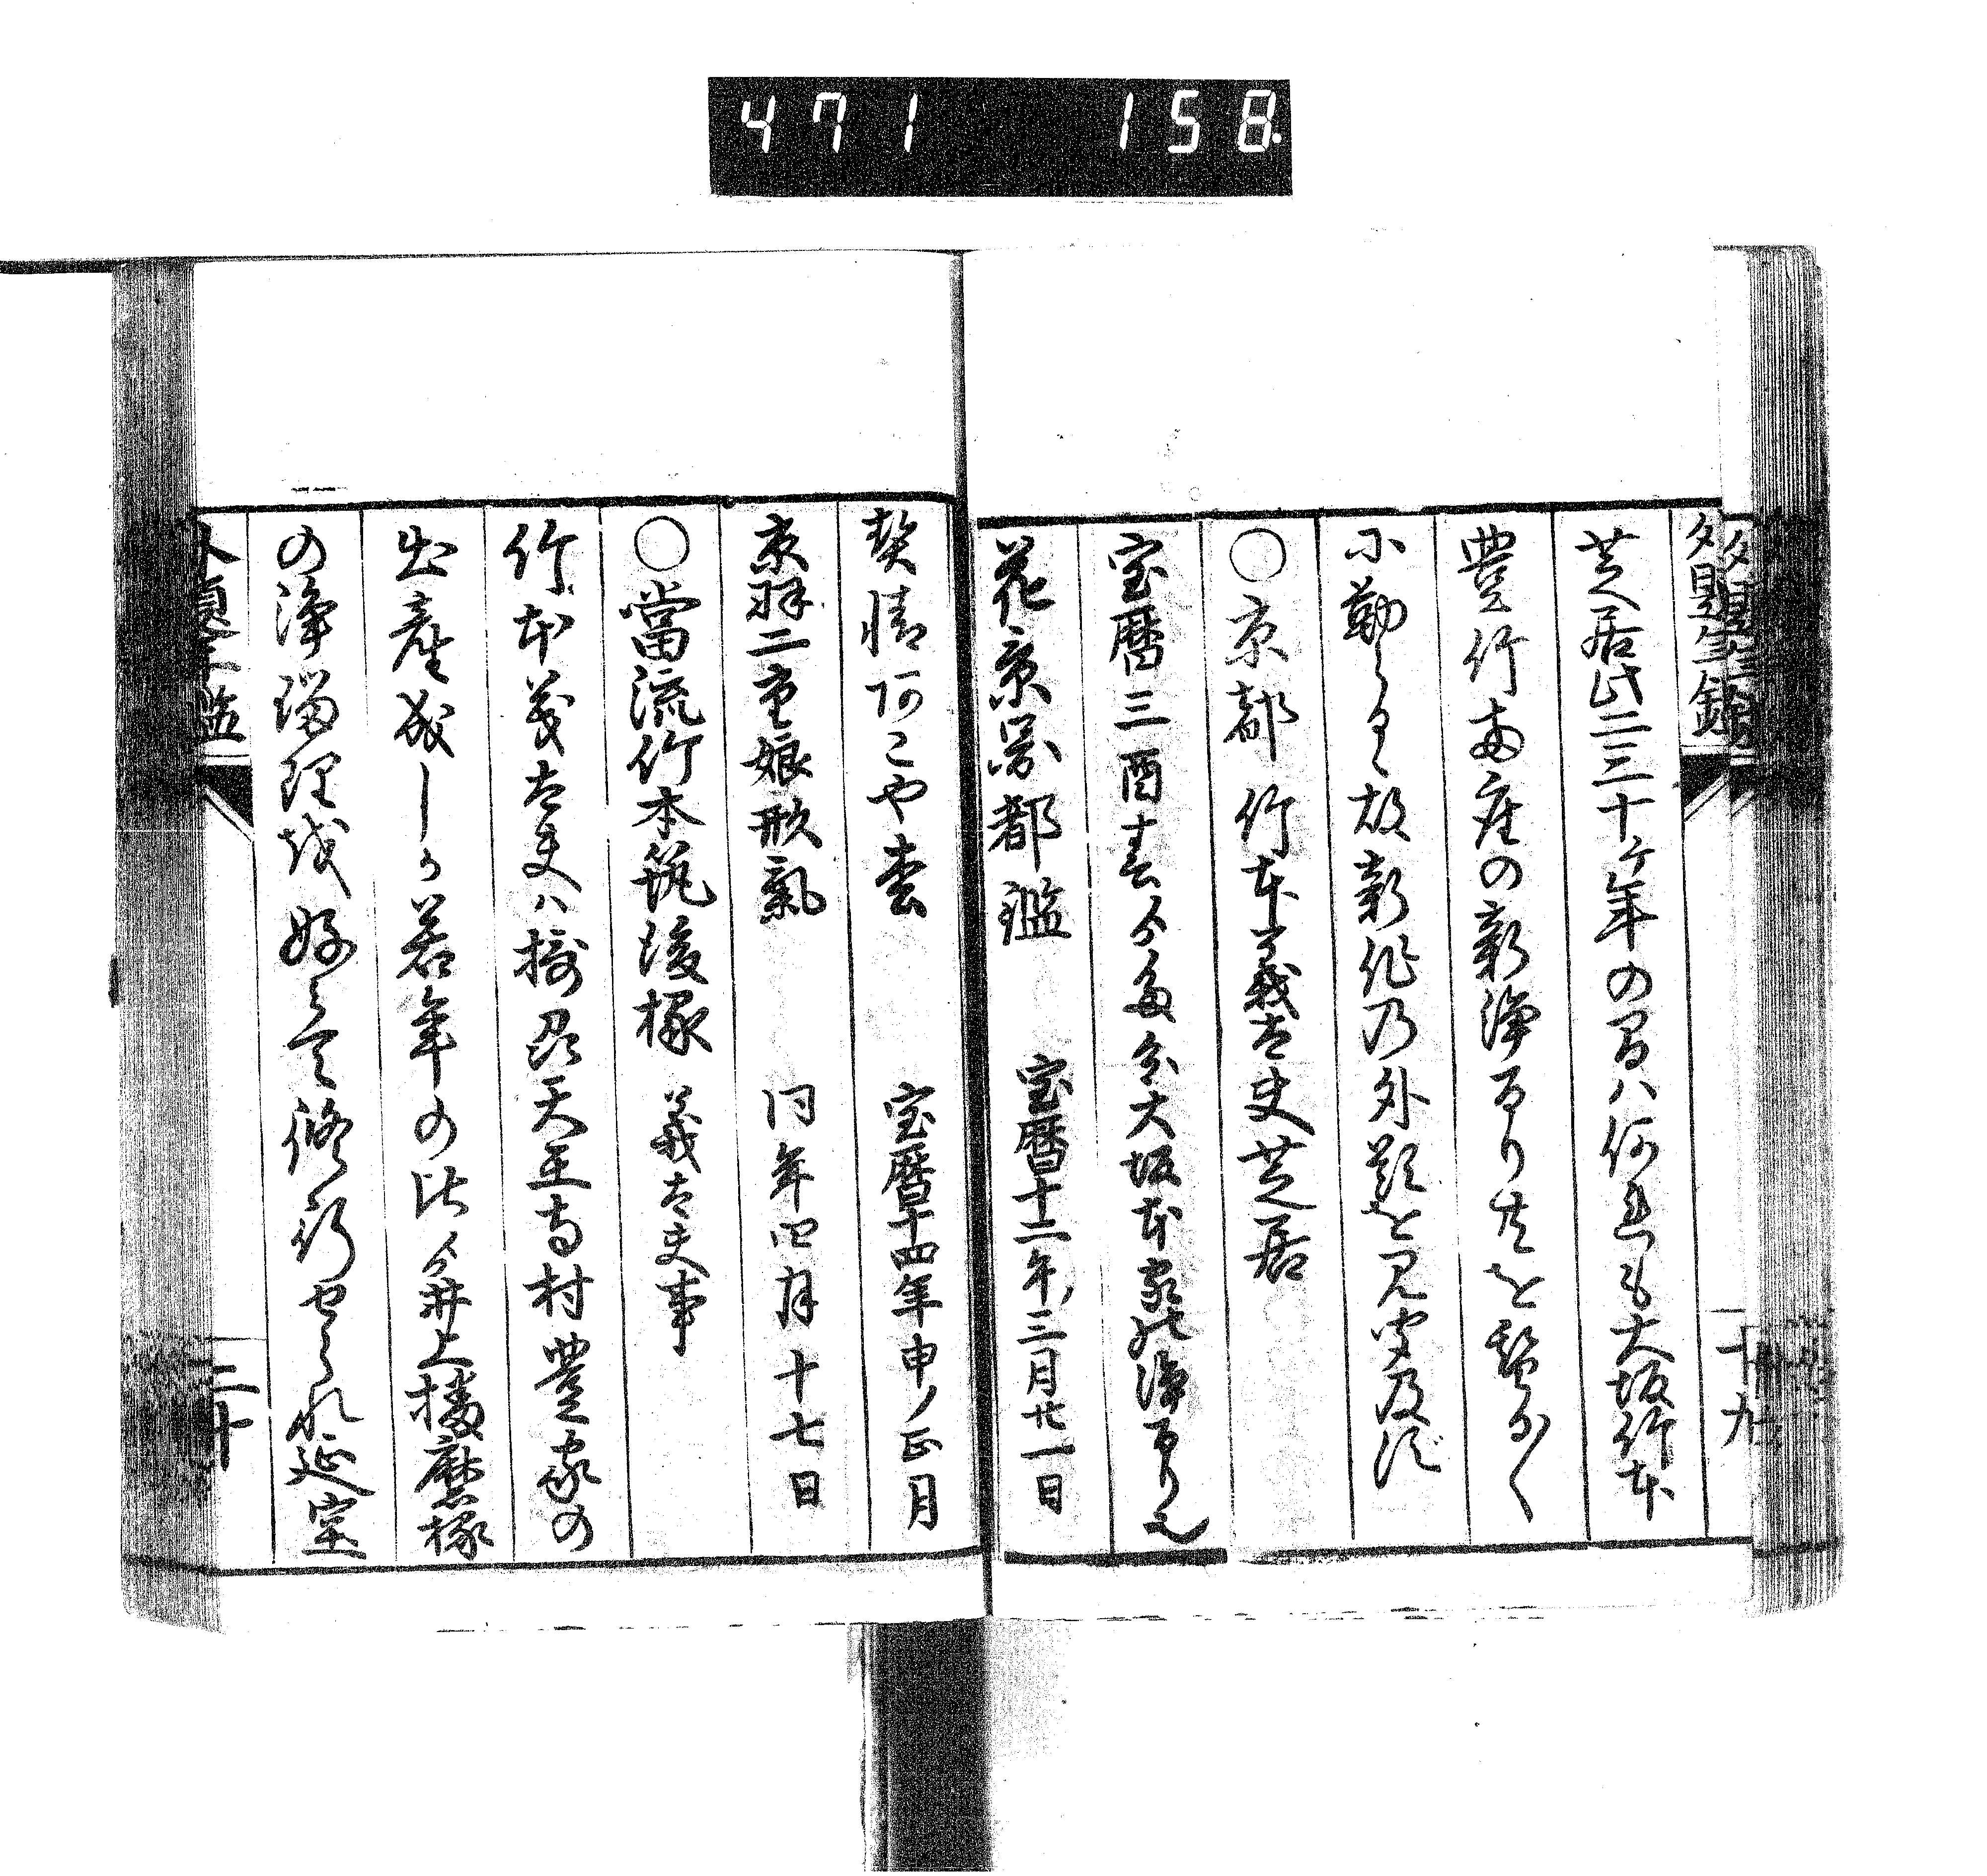 471 158
芝居此二三十ヶ年の間ハ何れも大坂竹本
豊竹両座の新浄るり计を繁多く
小勤らるゝ故新作乃外題を見聞及ず
○京都 竹本義太夫芝居
宝暦三酉春ゟ多分大坂本家の浄るり也
花系図都鑑 宝暦十二年三月廿一日
契情阿こや松 宝暦十四年申ノ正月
京羽二重娘形氣 同年四月十七日
○當流竹本筑後掾 義太夫事
竹本義太夫ハ摂刕天王寺村豊家の
出産成しが若年の比ゟ井上播磨掾
の浄瑠理を好ミて修行せられ延宝
十九
二十